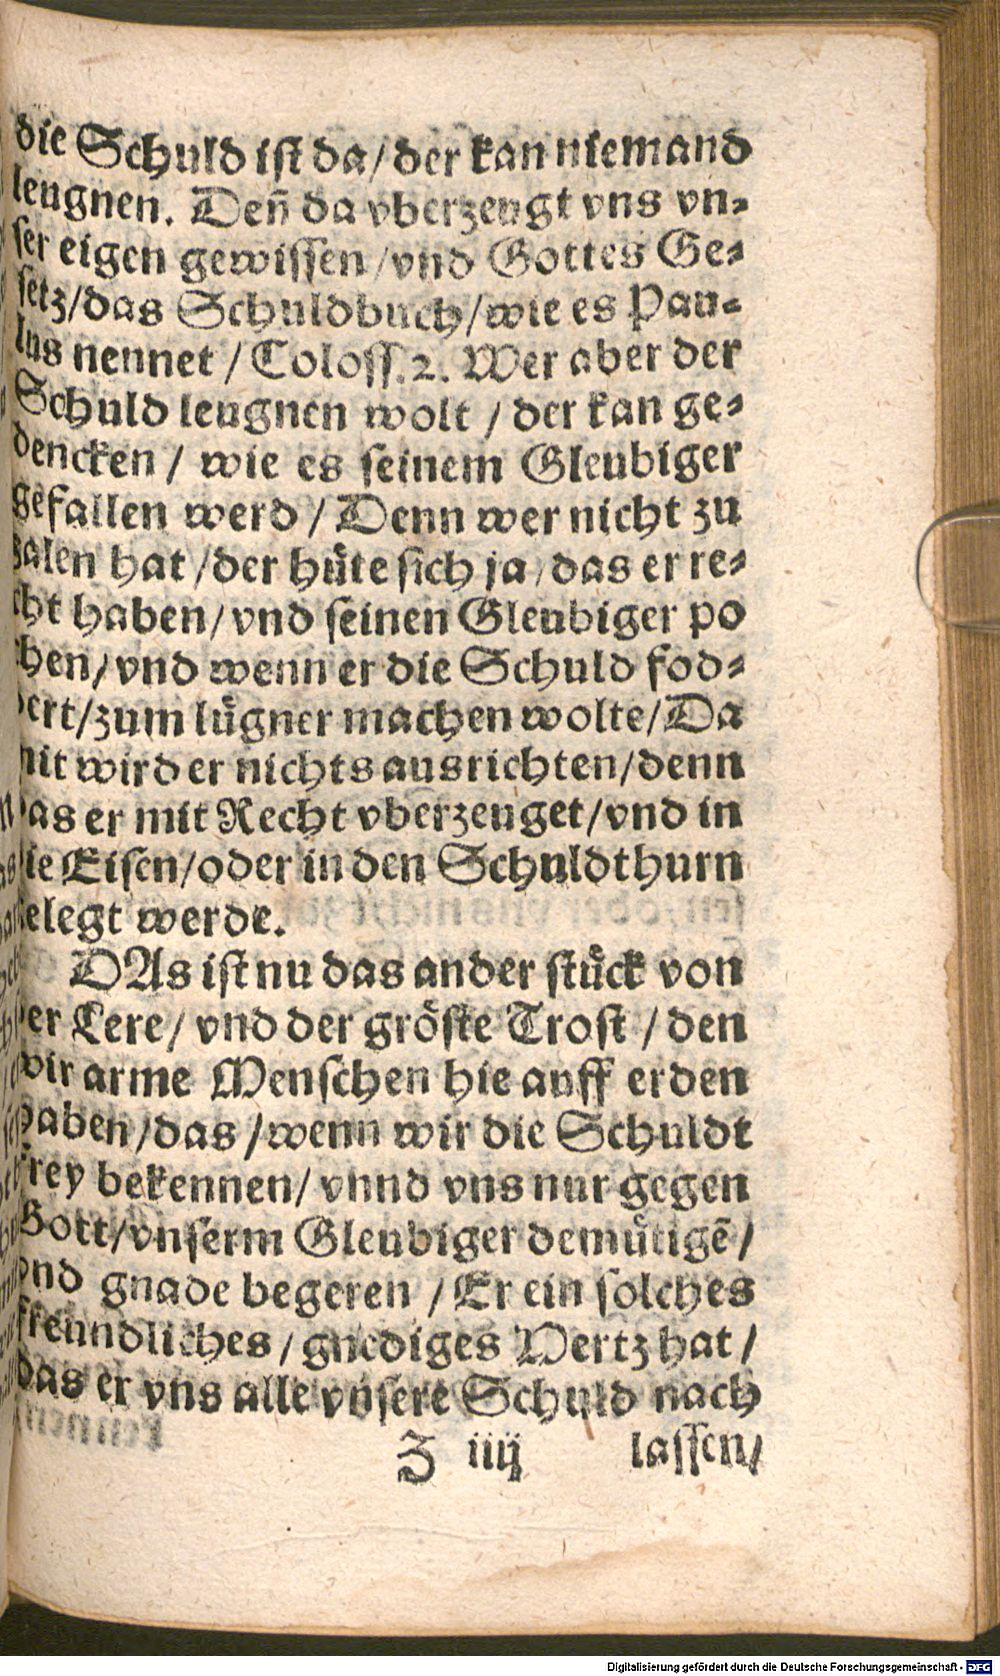 die Schuld ist da/ der kan niemand
leugnen. Deñ da vberzeugt vns vn-
ser eigen gewissen /vnd Gottes Ge-
setz/das Schuldbuch/wie es Pau-
lus nennet / Coloss.2. Wer aber der
Schuld leugnen wolt / der kan ge-
dencken / wie es seinem Gleubiger
gefallen werd / Denn wer nicht zu
zalen hat /der hüte sich ja /das er re-
cht haben/ vnd seinen Gleubiger po
chen/ vnd wenn er die Schuld fod-
dert/zum lügner machen wolte/ Da
mit wird er nichts ausrichten/denn
das er mit Recht vberzeuget/vnd in
die Eisen/oder in den Schuldthurn
gelegt werde.
DAs ist nu das ander stück von
der Lere/ vnd der gröste Trost / den
wir arme Menschen hie auff erden
haben/das /wenn wir die Schuldt
frey bekennen/ vnnd vns nur gegen
Gott/vnserm Gleubiger demütigē /
vnd gnade begeren / Er ein solches
freundliches / gnediges Hertz hat /
das er vns alle vnsere Schuld nach
Z iiij lassen/
Digitalisierung gefördert durch die Deutsche Forschungsgemeinschaft - DFG